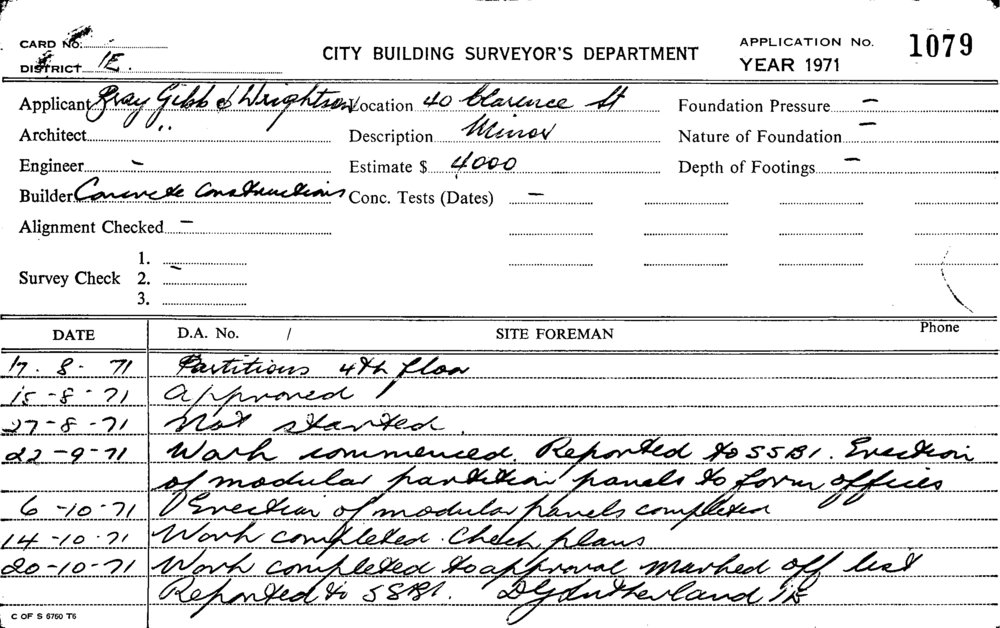 CARD No.
DISTRICT 1E.
CITY BUILDING SURVEYOR'S DEPARTMENT
APPLICATION No. 1079
YEAR 1971
Applicant Gray Gibb & Wrightson Location 40 Clarence St Foundation Pressure –
Architect " Description Minor Nature of Foundation –
Engineer – Estimate $ 4000 Depth of Footings –
Builder Concrete Constructions Conc. Tests (Dates) –
Alignment Checked –
1.
Survey Check 2. –
3.
DATE D.A. No. / SITE FOREMAN Phone
17. 8. 71 Partitions 4th floor
15-8-71 Approved
27-8-71 Not started.
22-9-71 Work commenced. Reported to SSBI. Erection
of modular partition panels to form offices
6-10-71 Erection of modular panels completed
14-10-71 Work completed. Check plans
20-10-71 Work completed to approval marked off list
Reported to SSBI. DG Sutherland 1E
C OF S 6750 T6